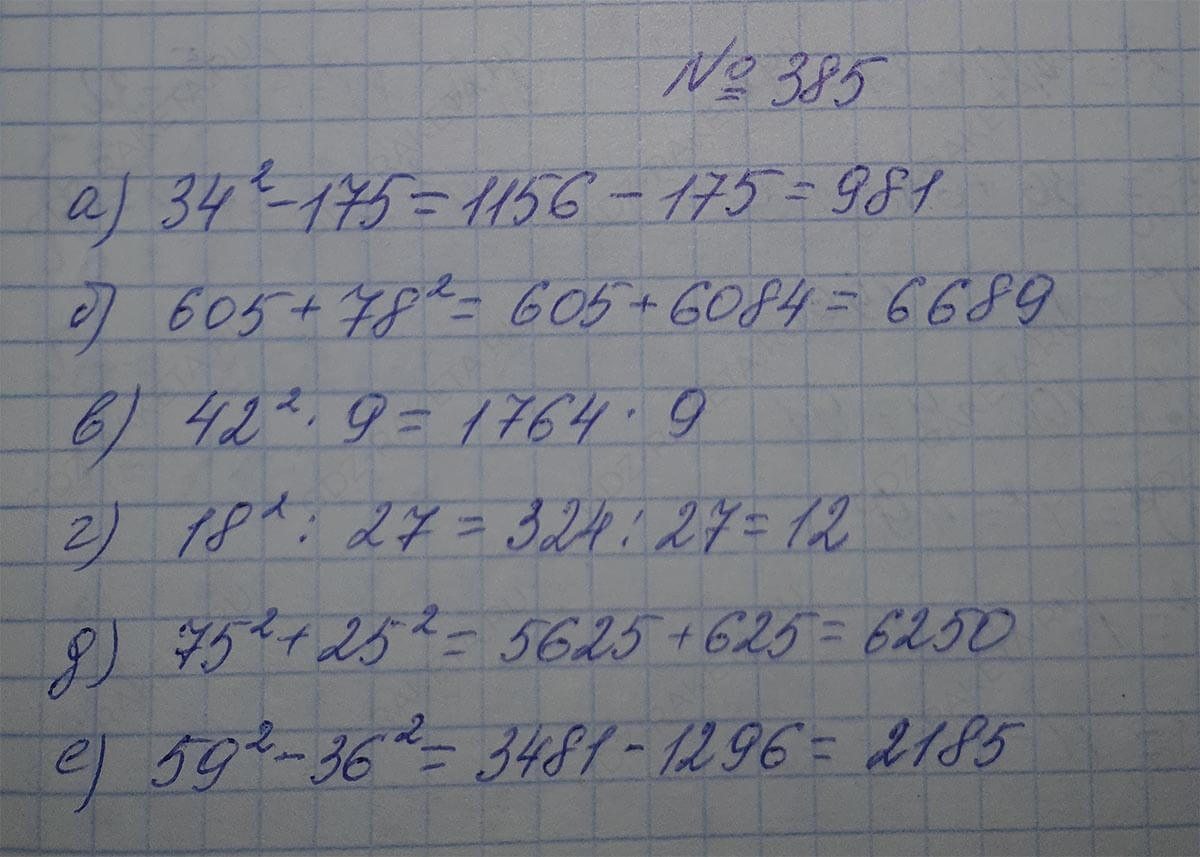 № 385
а) 34² - 175 = 1156 - 175 = 981
б) 605 + 78² = 605 + 6084 = 6689
в) 42² · 9 = 1764 · 9
г) 18² : 27 = 324 : 27 = 12
д) 75² + 25² = 5625 + 625 = 6250
е) 59² - 36² = 3481 - 1296 = 2185